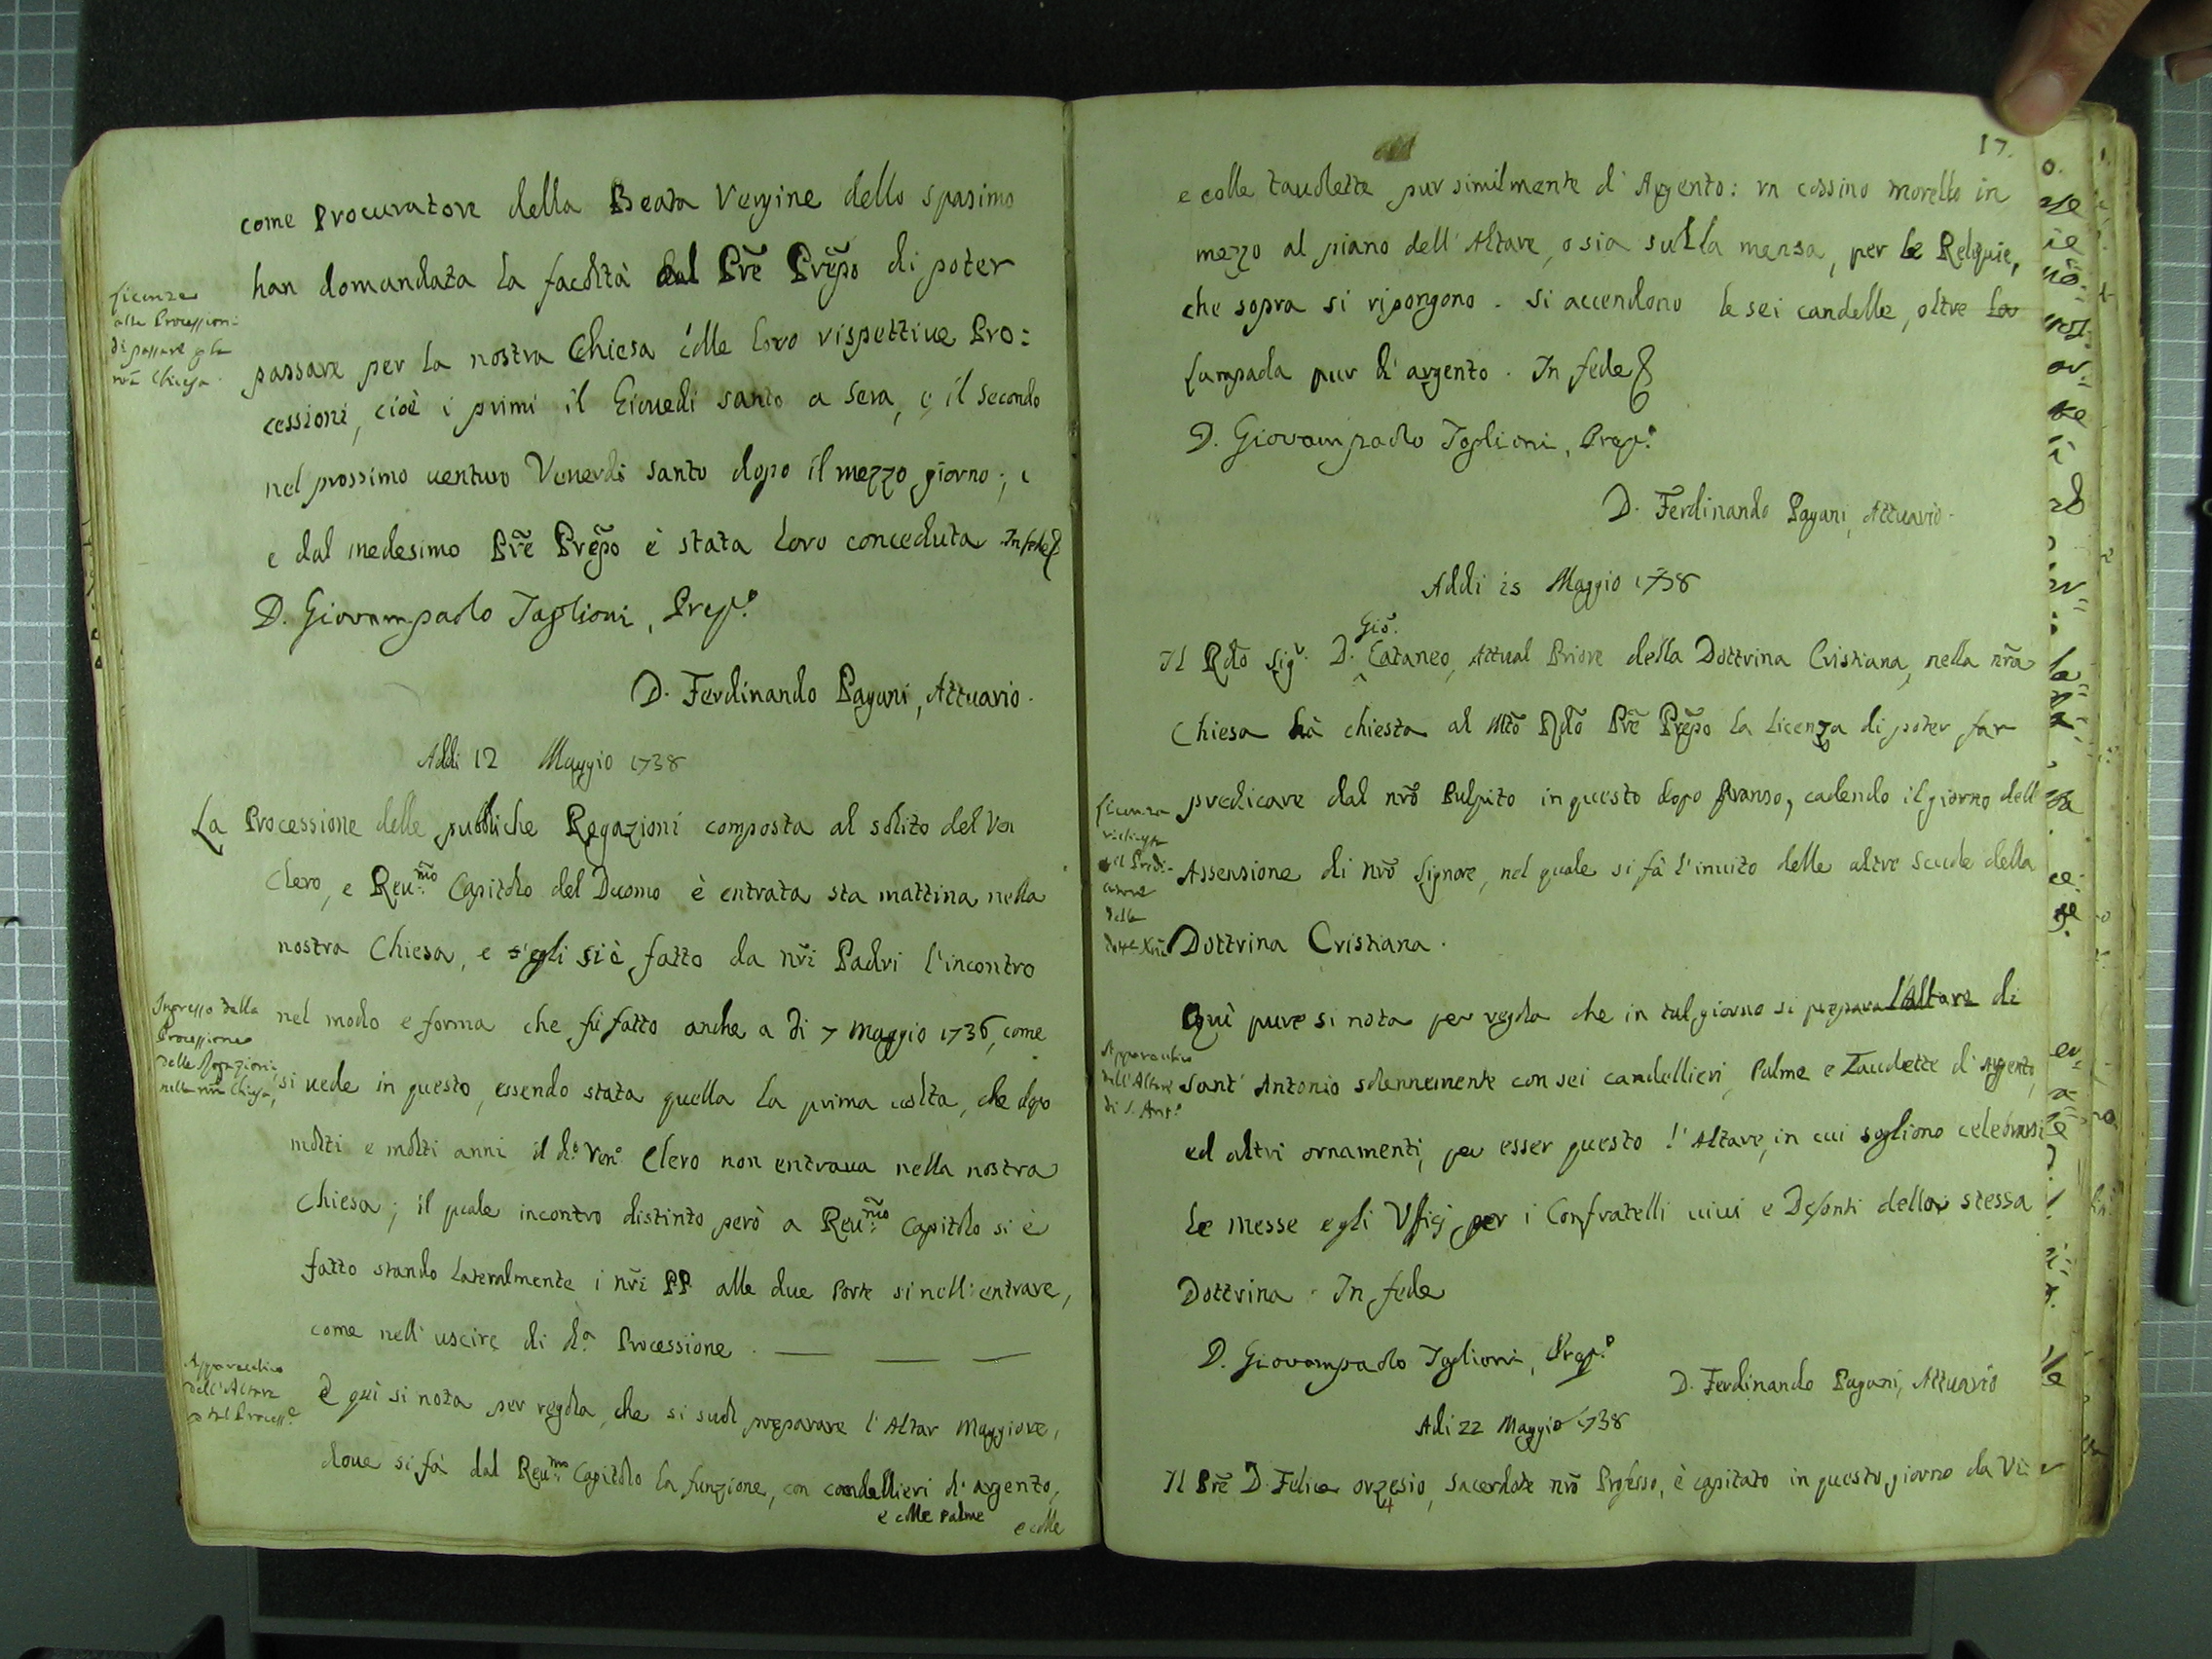 come Procuratore della Beata Vergine dello spasimo
han domandata la facoltà dal Prẽ Prẽpo di poter
Licenza
alle Processioni
di passare p la
nrã Chiesa
passare per la nostra Chiesa colle loro rispettive Pro:
cessioni, cioè i primi il Giouedi santo a sera, e il secondo
nel prossimo uenturo Venerdi santo dopo il mezzo giorno; e
e dal medesimo Prẽ Prẽpo è stata loro conceduta. In fede
D. Giovampaolo Taglioni, Prep.º
D. Ferdinando Pagani, Attuario.
Addi 12 Maggio 1738
La Processione delle pubbliche Rogazioni composta al solito del Ven
Clero, e Reu.mo Capitolo del Duomo è entrata sta mattina nella
nostra Chiesa, e s'egli si è fatto da nri Padri l'incontro
Ingresso della
Processione
delle Rogazioni
nella nrã Chiesa
nel modo e forma che fù fatto anche a di 7 Maggio 1736, come
si uede in questo, essendo stata quella la prima uolta, che dopo
molti e molti anni il d.º Ven.º Clero non entraua nella nostra
Chiesa; il quale incontro distinto però a Reu.mo Capitolo si è
fatto stando lateralmente i nri PP. alle due Porte si nell'entrare,
come nell'uscire di d.a Processione. — — —
Apparecchio
dell'Altare
p tal Process.e
E quì si nota per regola, che si suol preparare l'Altar Maggiore,
doue si fà dal Reu.mo Capitolo la funzione, con candellieri d'argento,
e colle Palme
e colle
17.
e colle tauolette pur similmente d'Argento: vn cossino morello in
mezzo al piano dell'Altare, o sia sulla mensa, per le Reliquie,
che sopra si ripongono. Si accendono le sei candelle, oltre la
Lampada pur d'argento. In fede
D. Giovampaolo Taglioni, Prep.º
D. Ferdinando Pagani, Attuario.
Addi 15 Maggio 1738
Il Rdo Sig.r D. Gio. Cataneo, Attual Priore della Dottrina Cristiana, nella nrã
Chiesa hà chiesta al Mto Rdo Prẽ Prẽpo la Licenza di poter far
predicare dal nrõ Pulpito in questo dopo Pranso, cadendo il giorno dell
Licenza
p il Predi-
catore
della
Dott. Xna
Assensione di nrõ Signore, nel quale si fà l'inuito delle altre Scuole della
Dottrina Cristiana.
Quì pure si nota per regola che in tal giorno si prepara l'Altare di
Apparecchio
dell'Altare
di S. Ant.º
Sant'Antonio solennemente con sei candellieri, Palme e Tauolette d'argento,
ed altri ornamenti, per esser questo l'Altare, in cui sogliono celebrarsi
le Messe e gli Vfficj per i Confratelli uiui e Defonti della stessa
Dottrina. In fede
D. Giovampaolo Taglioni, Prep.º
D. Ferdinando Pagani, Attuario
Adi 22 Maggio 1738
Il Prẽ D. Felice Orzesio, Sacerdote nrõ Professo, è capitato in questo giorno da Vi: